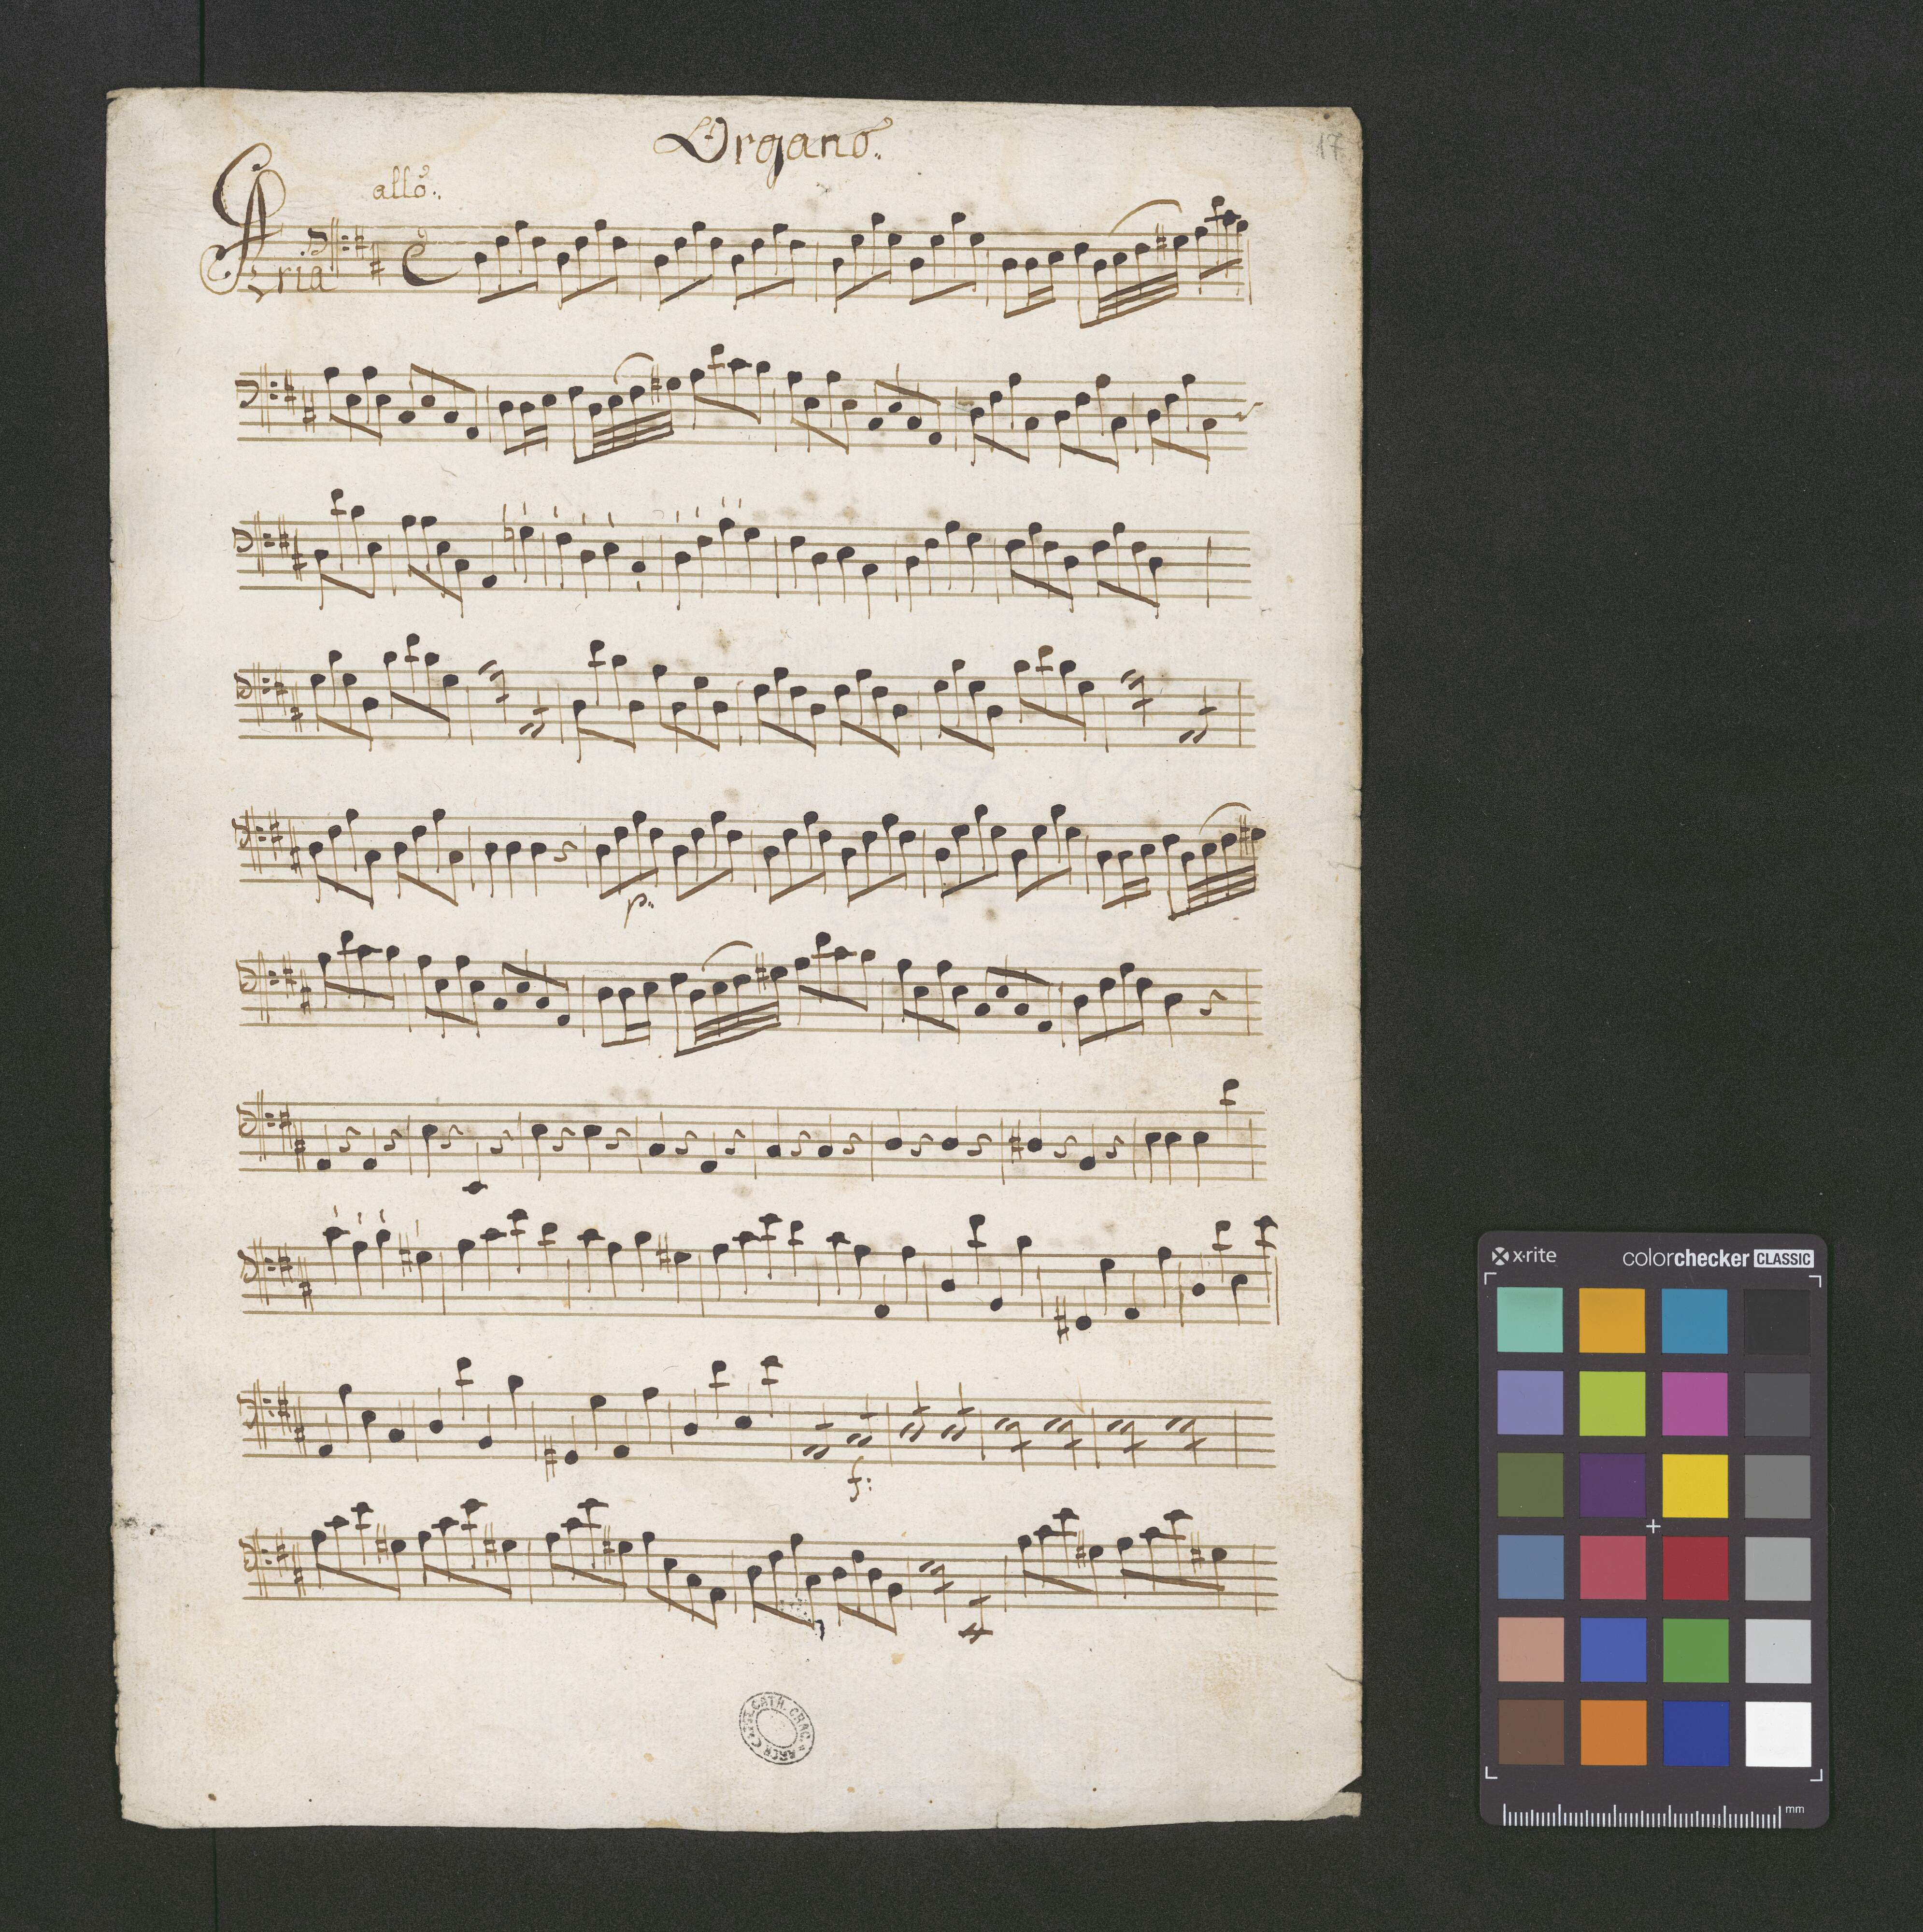 Organo.
17
allo.
Aria
p.
f:
ARCH. CAPIT. CATH. CRAC.
x·rite
colorchecker CLASSIC
mm